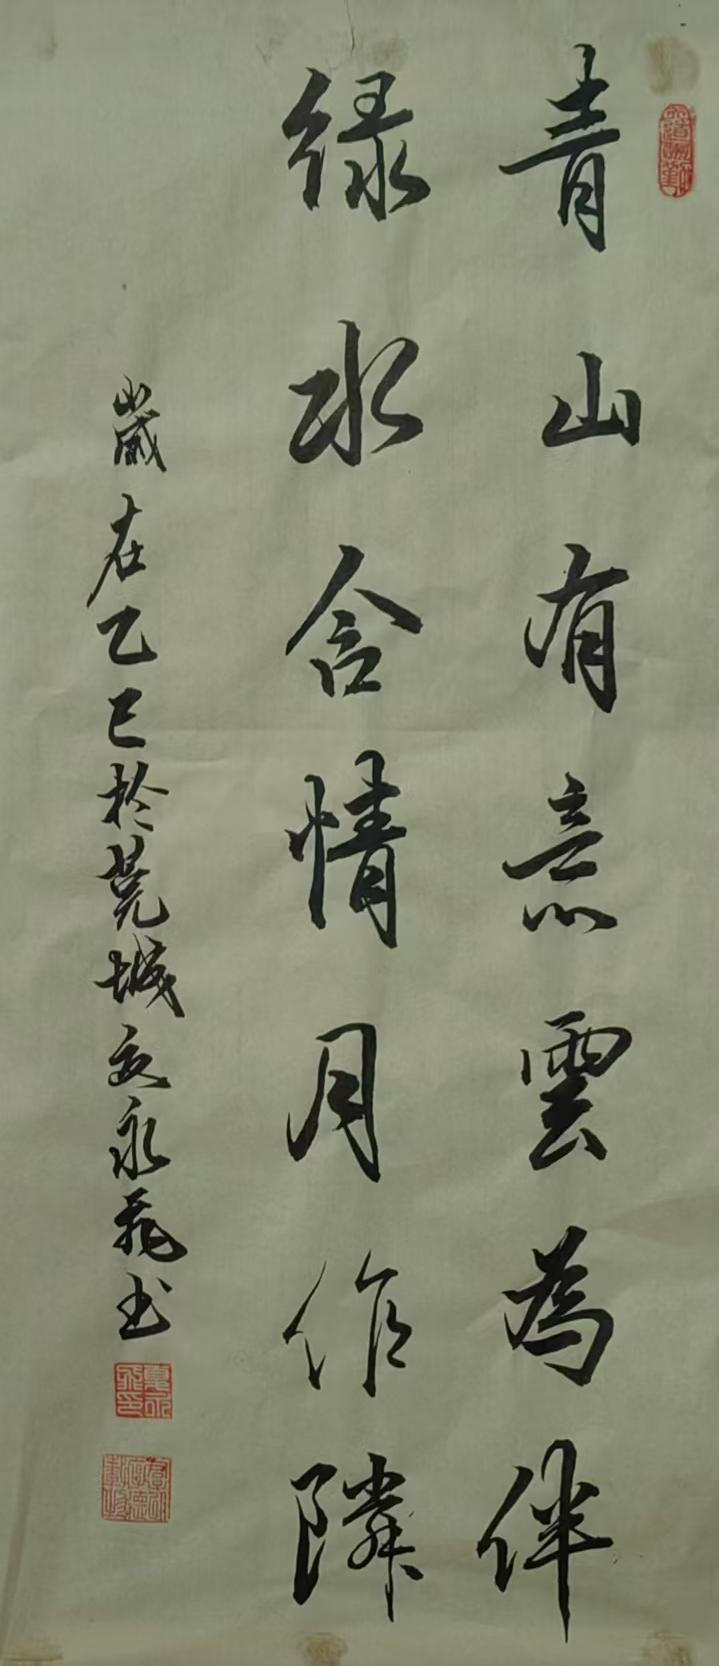 青山有意雲為伴
緑水含情月作隣
歲在乙巳於莞城夏永飛书